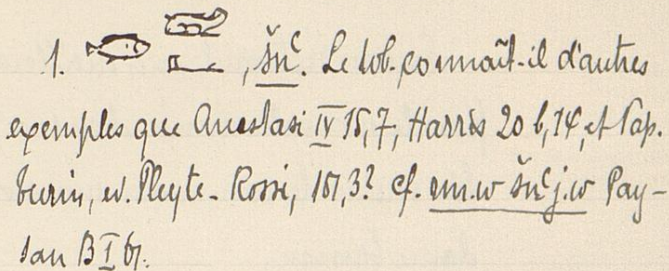 1. , šnꜥ. Le Wb. connaît-il d'autres
exemples que Anastasi IV 15,7, Harris 20 b,14, et Pap.
Turin, ed. Pleyte-Rossi, cf. rm.w šnꜥj.w Pay-
san B I 61.